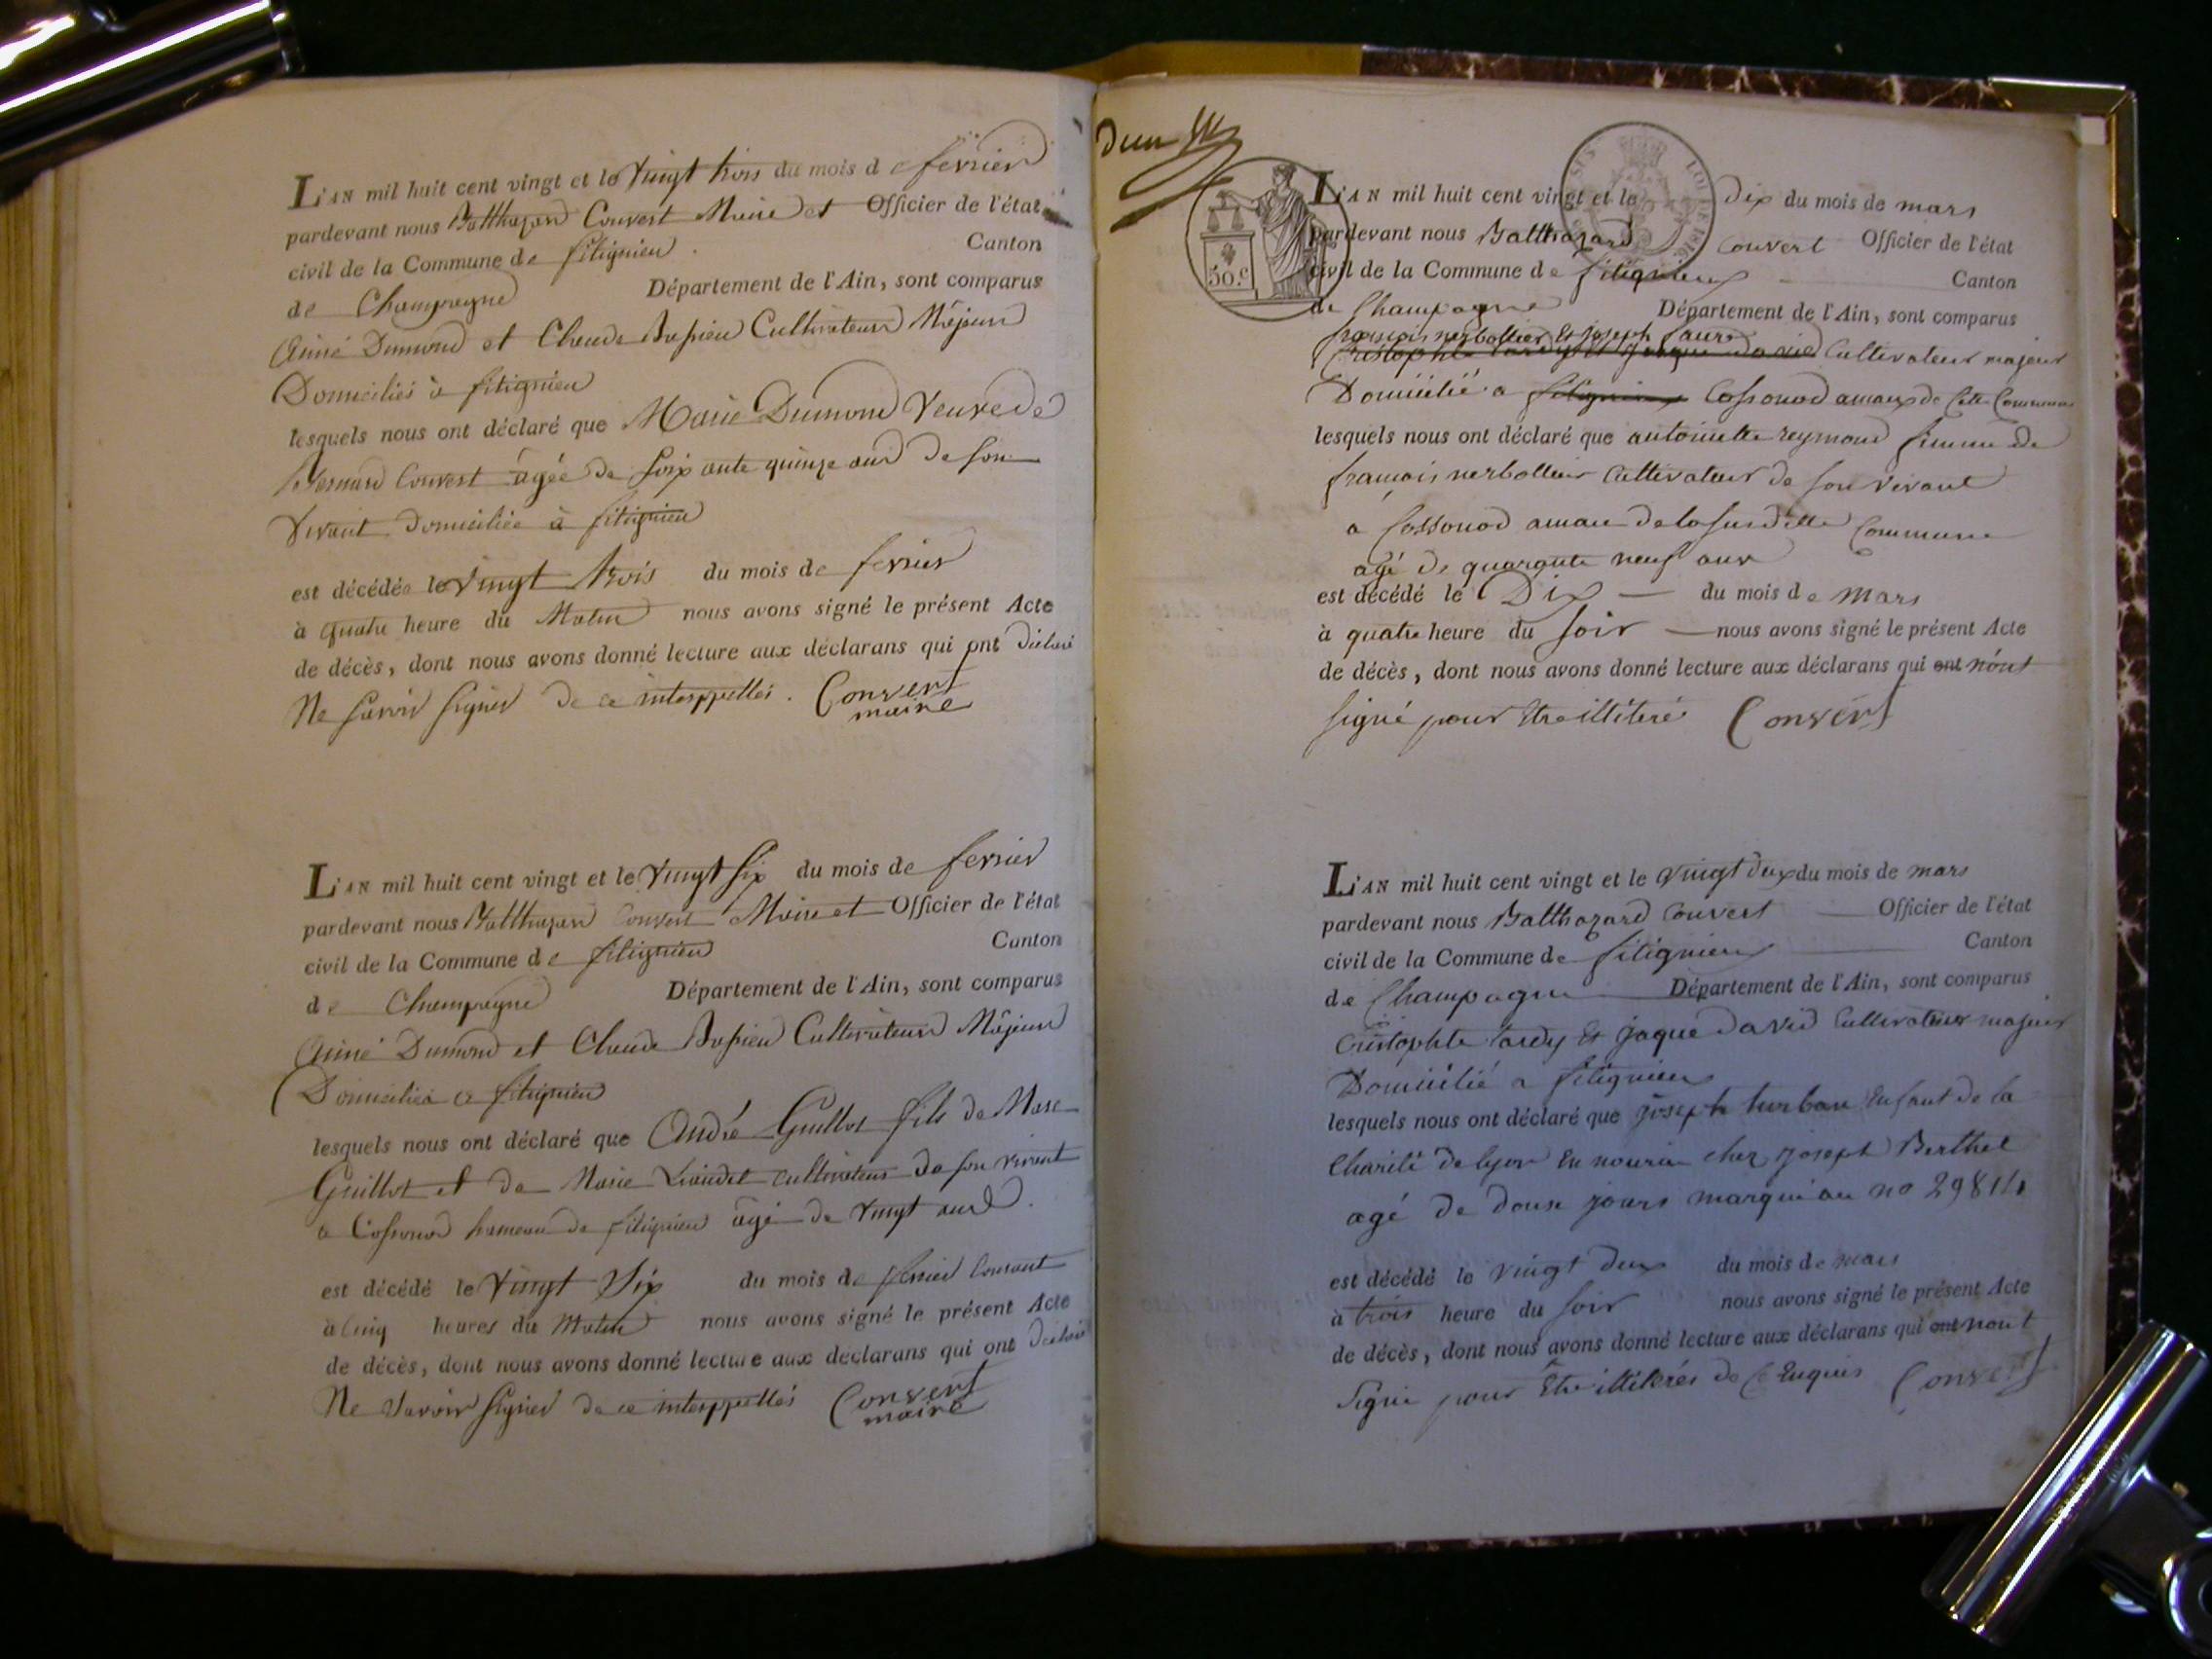 L'AN mil huit cent vingt et le vingt trois du mois de fevrier
pardevant nous Balthazard Convert Maire et Officier de l'état
civil de la Commune de fitignieu . Canton
de Champagne Département de l'Ain, sont comparus
Aimé Dumond et Claude Cultivateurs Majeurs
Domiciliés à fitignieu
lesquels nous ont déclaré que Marie Dumond Veuve de
Bernard Convert âgée de soixante quinze ans de son
vivant domiciliée à fitignieu
est décédée le vingt trois du mois de fevrier
à quatre heure du Matin nous avons signé le présent Acte
de décès, dont nous avons donné lecture aux déclarans qui ont déclaré
Ne savoir signer de ce interppellés . Convert
maire
L'AN mil huit cent vingt et le vingt six du mois de fevrier
pardevant nous Balthazard Convert Maire et Officier de l'état
civil de la Commune de fitignieu Canton
de Champagne Département de l'Ain, sont comparus
Aimé Dumond et Claude Cultivateurs Majeurs
Domiciliés a fitignieu
lesquels nous ont déclaré que André Guillot fils de Marc
Guillot et de Marie cultivateur de son vivant
a Cossonod hameau de fitignieu âgé de vingt ans .
est décédé le vingt six du mois de fevrier Courant
à Cinq heures du Matin nous avons signé le présent Acte
de décès, dont nous avons donné lecture aux déclarans qui ont déclaré
Ne savoir signer de ce interppellés Convert
maire
50.c
L'AN mil huit cent vingt et le Dix du mois de mars
pardevant nous Balthazard Convert Officier de l'état
civil de la Commune de fitignieu Canton
de Champagne Département de l'Ain, sont comparus
françois nerbollier Et joseph faure
Cristophle tardy Et jaque david Cultivateur majeur
Domicilié a fitignieu Cossonod amaux de Cette Commune
lesquels nous ont déclaré que antoinette reymond femme de
françois nerbollier Cultivateur de son vivant
a Cossonod amau de la susditte Commune
agé de quarante neuf ans
est décédé le Dix du mois de mars
à quatre heure du soir nous avons signé le présent Acte
de décès, dont nous avons donné lecture aux déclarans qui ont n'ont
signé pour Etre illiteré Convert
L'AN mil huit cent vingt et le vingt deux du mois de mars
pardevant nous Balthazard Convert Officier de l'état
civil de la Commune de fitignieu Canton
de Champagne Département de l'Ain, sont comparus
Cristophle tardy Et jaque david Cultivateur majeur
Domicilié a fitignieu
lesquels nous ont déclaré que joseph Enfant de la
Charité de lyon En chez joseph Berthet
agé de jours au no
est décédé le vingt deux du mois de mars
à trois heure du soir nous avons signé le présent Acte
de décès, dont nous avons donné lecture aux déclarans qui ont nont
signé pour Etre illiterés de Ce Enquis Convert